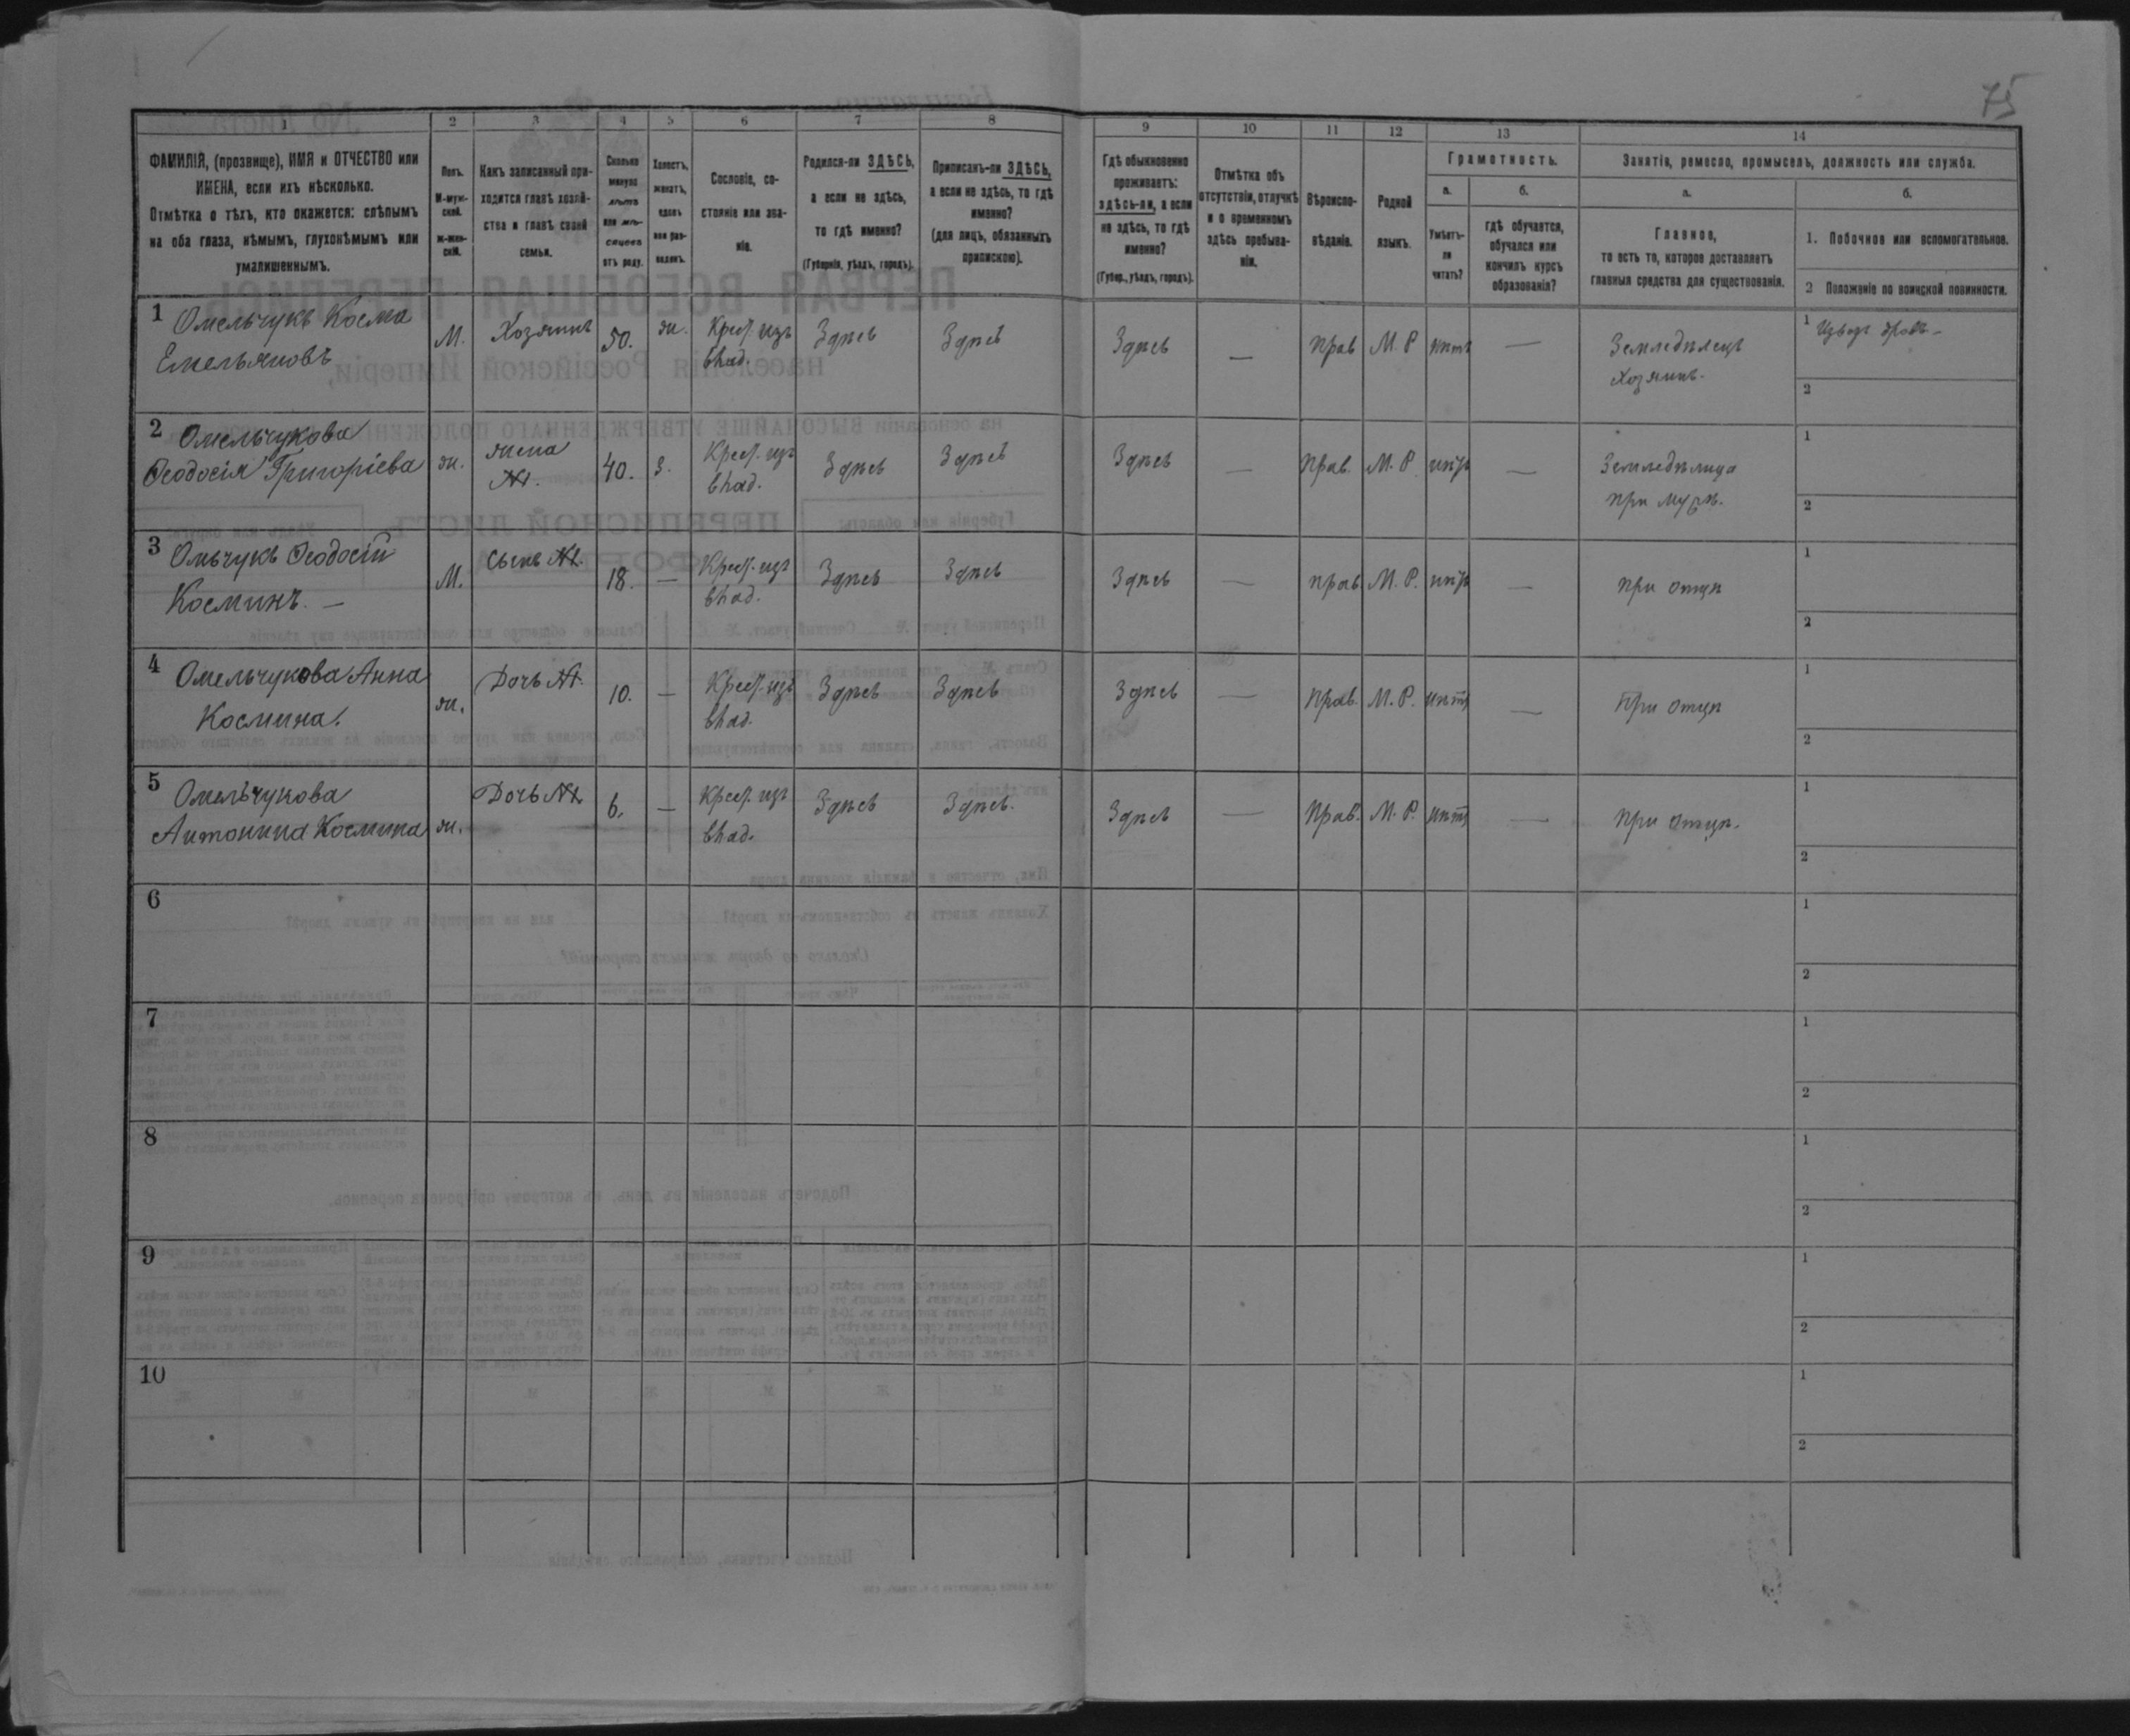 75
1 2 3 4 5 6 7 8 9 10 11 12 13 14
ФАМИЛІЯ, (прозвище), ИМЯ и ОТЧЕСТВО или
ИМЕНА, если ихъ нѣсколько.
Отмѣтка о тѣхъ, кто окажется: слѣпымъ
на оба глаза, нѣмымъ, глухонѣмымъ или
умалишеннымъ.
Полъ.
М-муж-
ской.
ж-жен-
скій.
Какъ записанный при-
ходится главѣ хозяй-
ства и главѣ своей
семьи.
Сколько
минуло
лѣтъ
или мѣ-
сяцевъ
отъ роду.
Холостъ,
женатъ,
вдовъ
или раз-
веденъ.
Сословіе, со-
стояніе или зва-
ніе.
Родился-ли ЗДѢСЬ,
а если не здѣсь,
то гдѣ именно?
(Губернія, уѣздъ, городъ).
Приписанъ-ли ЗДѢСЬ,
а если не здѣсь, то гдѣ
именно?
(для лицъ, обязанныхъ
припискою).
Гдѣ обыкновенно
проживаетъ:
здѣсь-ли, а если
не здѣсь, то гдѣ
именно?
(Губер., уѣздъ, городъ).
Отмѣтка объ
отсутствіи, отлучкѣ
и о временномъ
здѣсь пребыва-
ніи.
Вѣроиспо-
вѣданіе.
Родной
языкъ.
Грамотность.
а.
Умѣетъ-
ли
читать?
б.
гдѣ обучается,
обучался или
кончилъ курсъ
образованія?
Занятіе, ремесло, промыселъ, должность или служба.
а.
Главное,
то есть то, которое доставляетъ
главныя средства для существованія.
б.
1. Побочное или вспомогательное.
2 Положеніе по воинской повинности.
1 Омельчукъ Косма
Емельяновъ
М. Хозяинъ 50. ж. Крест. изъ
влад.
Здѣсь Здѣсь Здѣсь — прав М. Р нѣтъ —
Земледѣлецъ
Хозяинъ.
1 Извоз дровъ –
2
2 Омельчукова
Ѳеодосія Григоріева
ж. жена
№1. 40. З. Крест. изъ
влад.
Здѣсь Здѣсь Здѣсь — Прав. М. Р. нѣтъ —
Земледѣлица
при мужѣ.
1
2
3 Омьчукъ Ѳеодосій
Косминъ. —
М. Сынъ №1. 18. — Крест. изъ
влад.
Здѣсь Здѣсь Здѣсь — прав М. Р. нѣтъ — при отцѣ
1
2
4 Омельчукова Анна
Космина.
ж. Дочь №1. 10. — Крест. изъ
влад.
Здѣсь Здѣсь Здѣсь — Прав. М. Р. нѣтъ — При отцѣ
1
2
5 Омельчукова
Антонина Космина
ж. Дочь №1. 6. — Крест. изъ
влад.
Здѣсь Здѣсь. Здѣсь — Прав. М. Р. нѣтъ — при отцѣ.
1
2
6
1
2
7
1
2
8
1
2
9
1
2
10
1
2